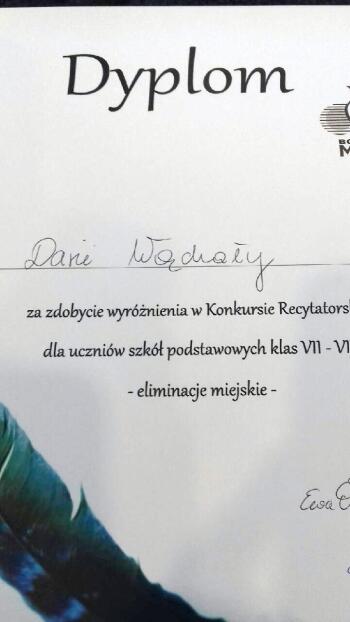 Dyplom
BO
M
Darii Wądrały
za zdobycie wyróżnienia w Konkursie Recytators
dla uczniów szkół podstawowych klas VII - VI
- eliminacje miejskie -
Ewa